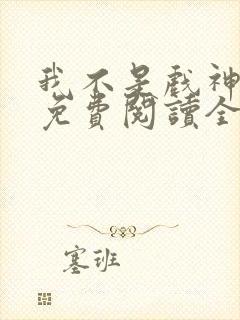 我不是戲神
免費閱讀全
塞班